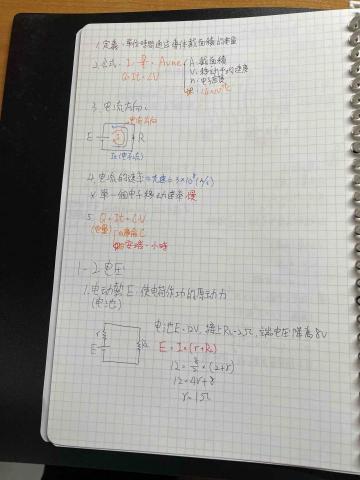 1. 定義：單位時間通過導体截面積的電量
2. 公式：I = Q/t = Avne
A: 截面積
V: 移動平均速度
n: 電子密度
Q = It = CV
3. 電流方向：
電流方向
E R
Ie(電子流)
4. 電流的速率=光速=3×10⁸(m/s)
※ 單一個電子移動速率慢
5. Q = It = CV
(電量)
安培-小時
1-2 電壓
1. 電動勢 E：使電荷作功的原動力
(電池)
r
E RL
電池E=12V, 接上RL=2Ω, 端電壓降為8V
E = I×(r+RL)
12 = 8/2 × (2+r)
12 = 4r+8
r = 1Ω